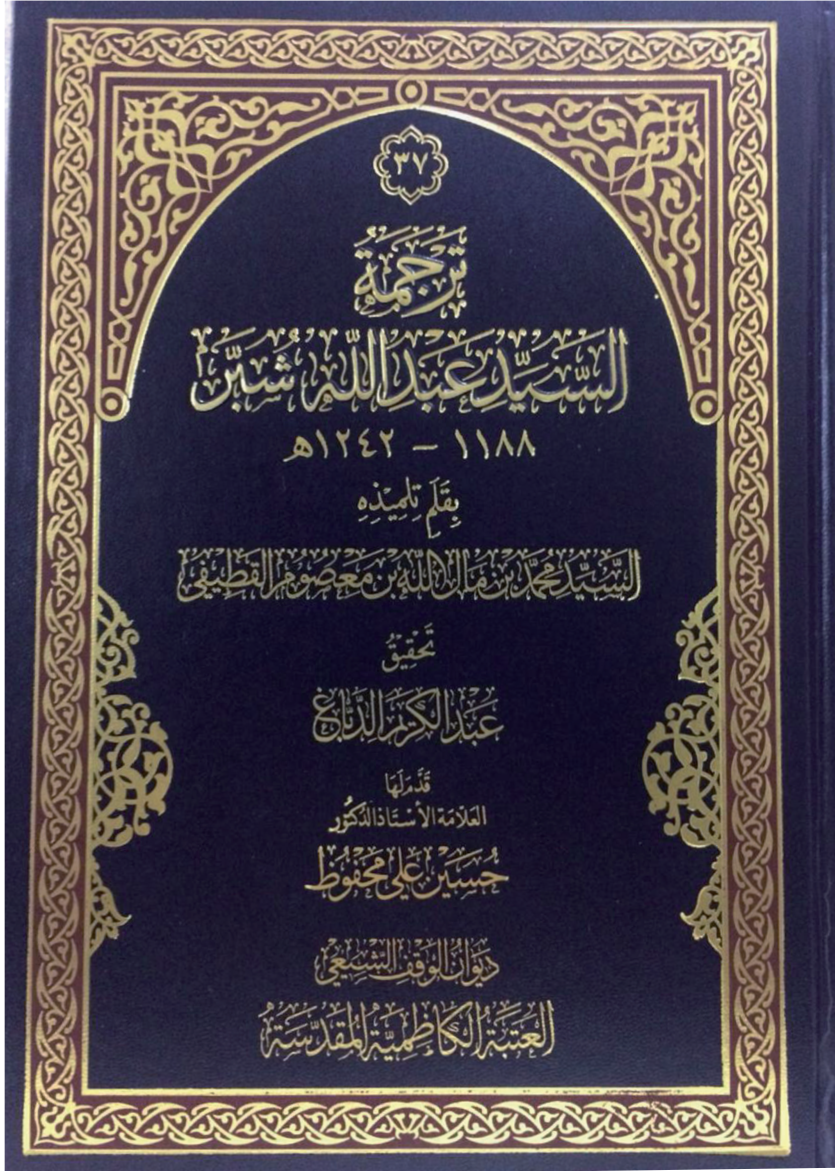 ٣٧
تَرْجَمَةُ
السَّيِّدِ عَبْدِ اللهِ شُبَّر
١١٨٨ - ١٢٤٢هـ
بِقَلَمِ تِلْمِيْذِهِ
السَّيِّدِ مُحَمَّد بن مَال الله بن مَعصُوم القَطِيفي
تَحْقِيْقُ
عَبْد الكَرِيْم الدَّبَّاغ
قَدَّمَ لَهَا
العَلَّامَة الأُسْتَاذ الدُّكتُوْر
حُسَيْن عَلِي مَحْفُوْظ
دِيوَانُ الوَقْفِ الشِّيْعِي
العَتَبَةُ الكَاظِمِيَّةُ المُقَدَّسَةُ